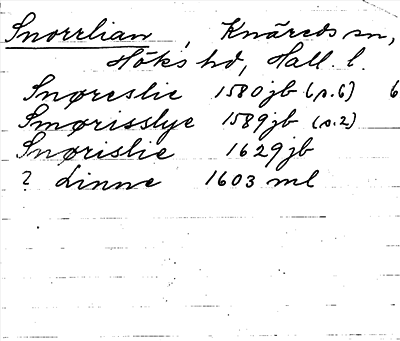 Snorrlian, Knäreds sn,
Höks hd, Hall. l.
Snøreslie 1580 jb (s.6) 6
Smørisslye 1589 jb (s.2)
Snørislie 1629 jb
? Linne 1603 ml